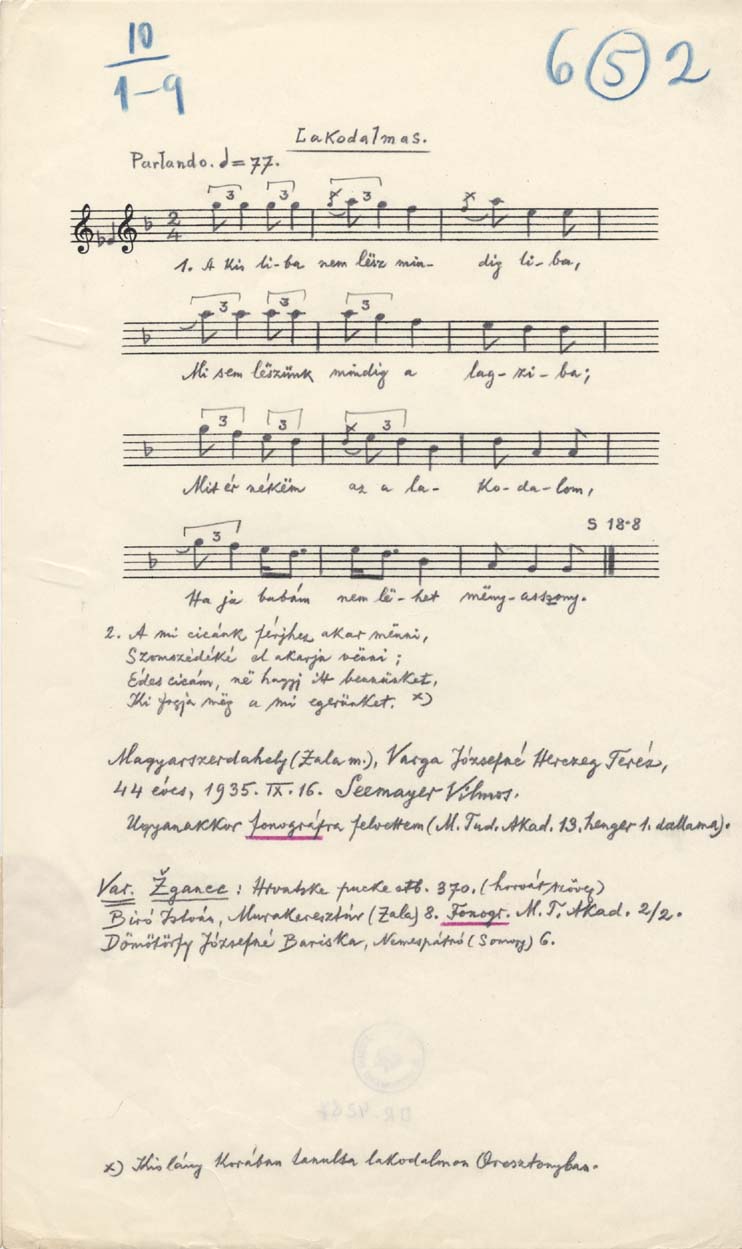 10
1-9
6 5 2
Lakodalmas.
Parlando. = 77.
3 3 3
2
4
1. A kis li-ba nem lësz min- dig li-ba,
3 3 3
Mi sem lëszünk mindig a lag-zi-ba;
3 3 3
Mit ér nékëm az a la- ko-da-lom,
S 18-8
3
Ha ja babám nem lë-het mëny-asszony.
2. A mi cicánk férjhez akar mënni,
Szomszédéké el akarja vënni;
Édes cicám, në hagyj itt bennünket,
Ki fogja mëg a mi egerünket. x)
Magyarszerdahely (Zala m.), Varga Józsefné Herczeg Teréz,
44 éves, 1935. IX. 16. Seemayer Vilmos.
Ugyanakkor fonográfra felvettem (M. Tud. Akad. 13. henger 1. dallama).
Var. Žgancc: Hrvatske pucke stb. 370. (horvát szöveg)
Biró István, Murakeresztúr (Zala) 8. Fonogr. M. T. Akad. 2/2.
Dömötörfy Józsefné Bariska, Nemespátró (Somogy) 6.
x) Kislány korában tanulta lakodalmon Orosztonyban.